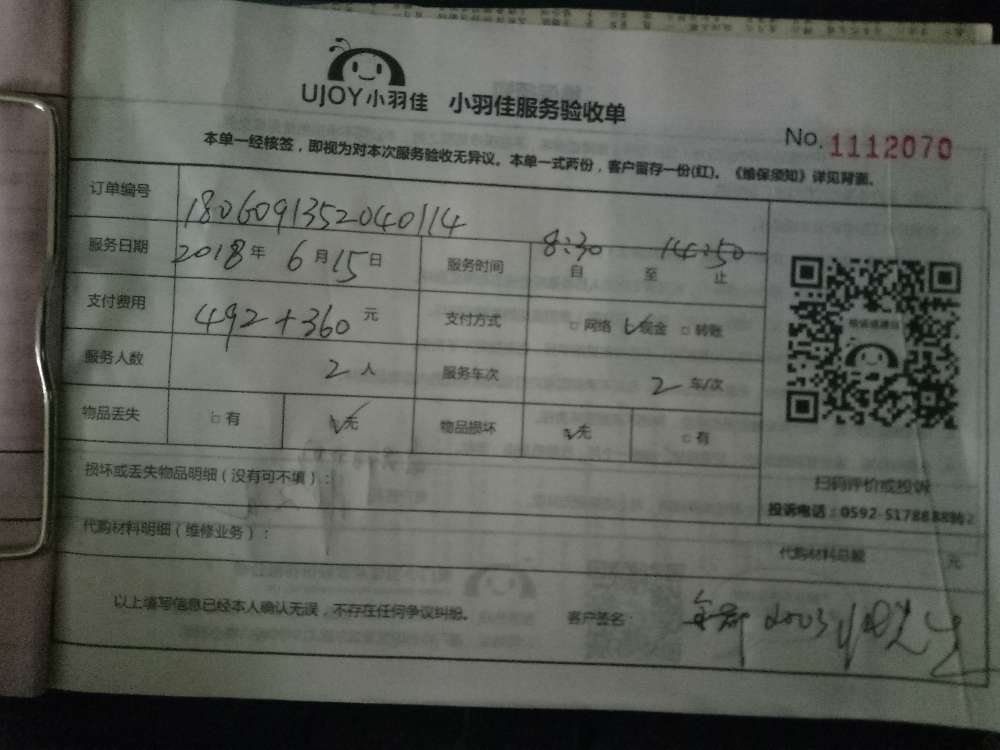 UJOY小羽佳 小羽佳服务验收单
No. 1112070
本单一经核签，即视为对本次服务验收无异议。本单一式两份，客户留存一份(红)。《维保须知》详见背面。
订单编号 1806091352040114
服务日期 2018年 6月15日 服务时间 8:30 自 至 14:50 止
支付费用 492+360 元 支付方式 □网络 ☑现金 □转账
服务人数 2人 服务车次 2 车/次
物品丢失 □有 ☑无 物品损坏 ☑无 □有
损坏或丢失物品明细（没有可不填）：
扫码评价或投诉
投诉电话：0592-5178888转2
代购材料明细（维修业务）：
代购材料总额 元
以上填写信息已经本人确认无误，不存在任何争议纠纷。 客户签名：